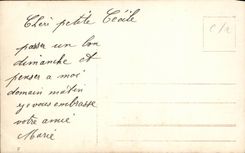 Chéri petite Cécile
passer un bon
dimanche et
penser a moi
domain matin
je vous embrasse
votre amié
Marié